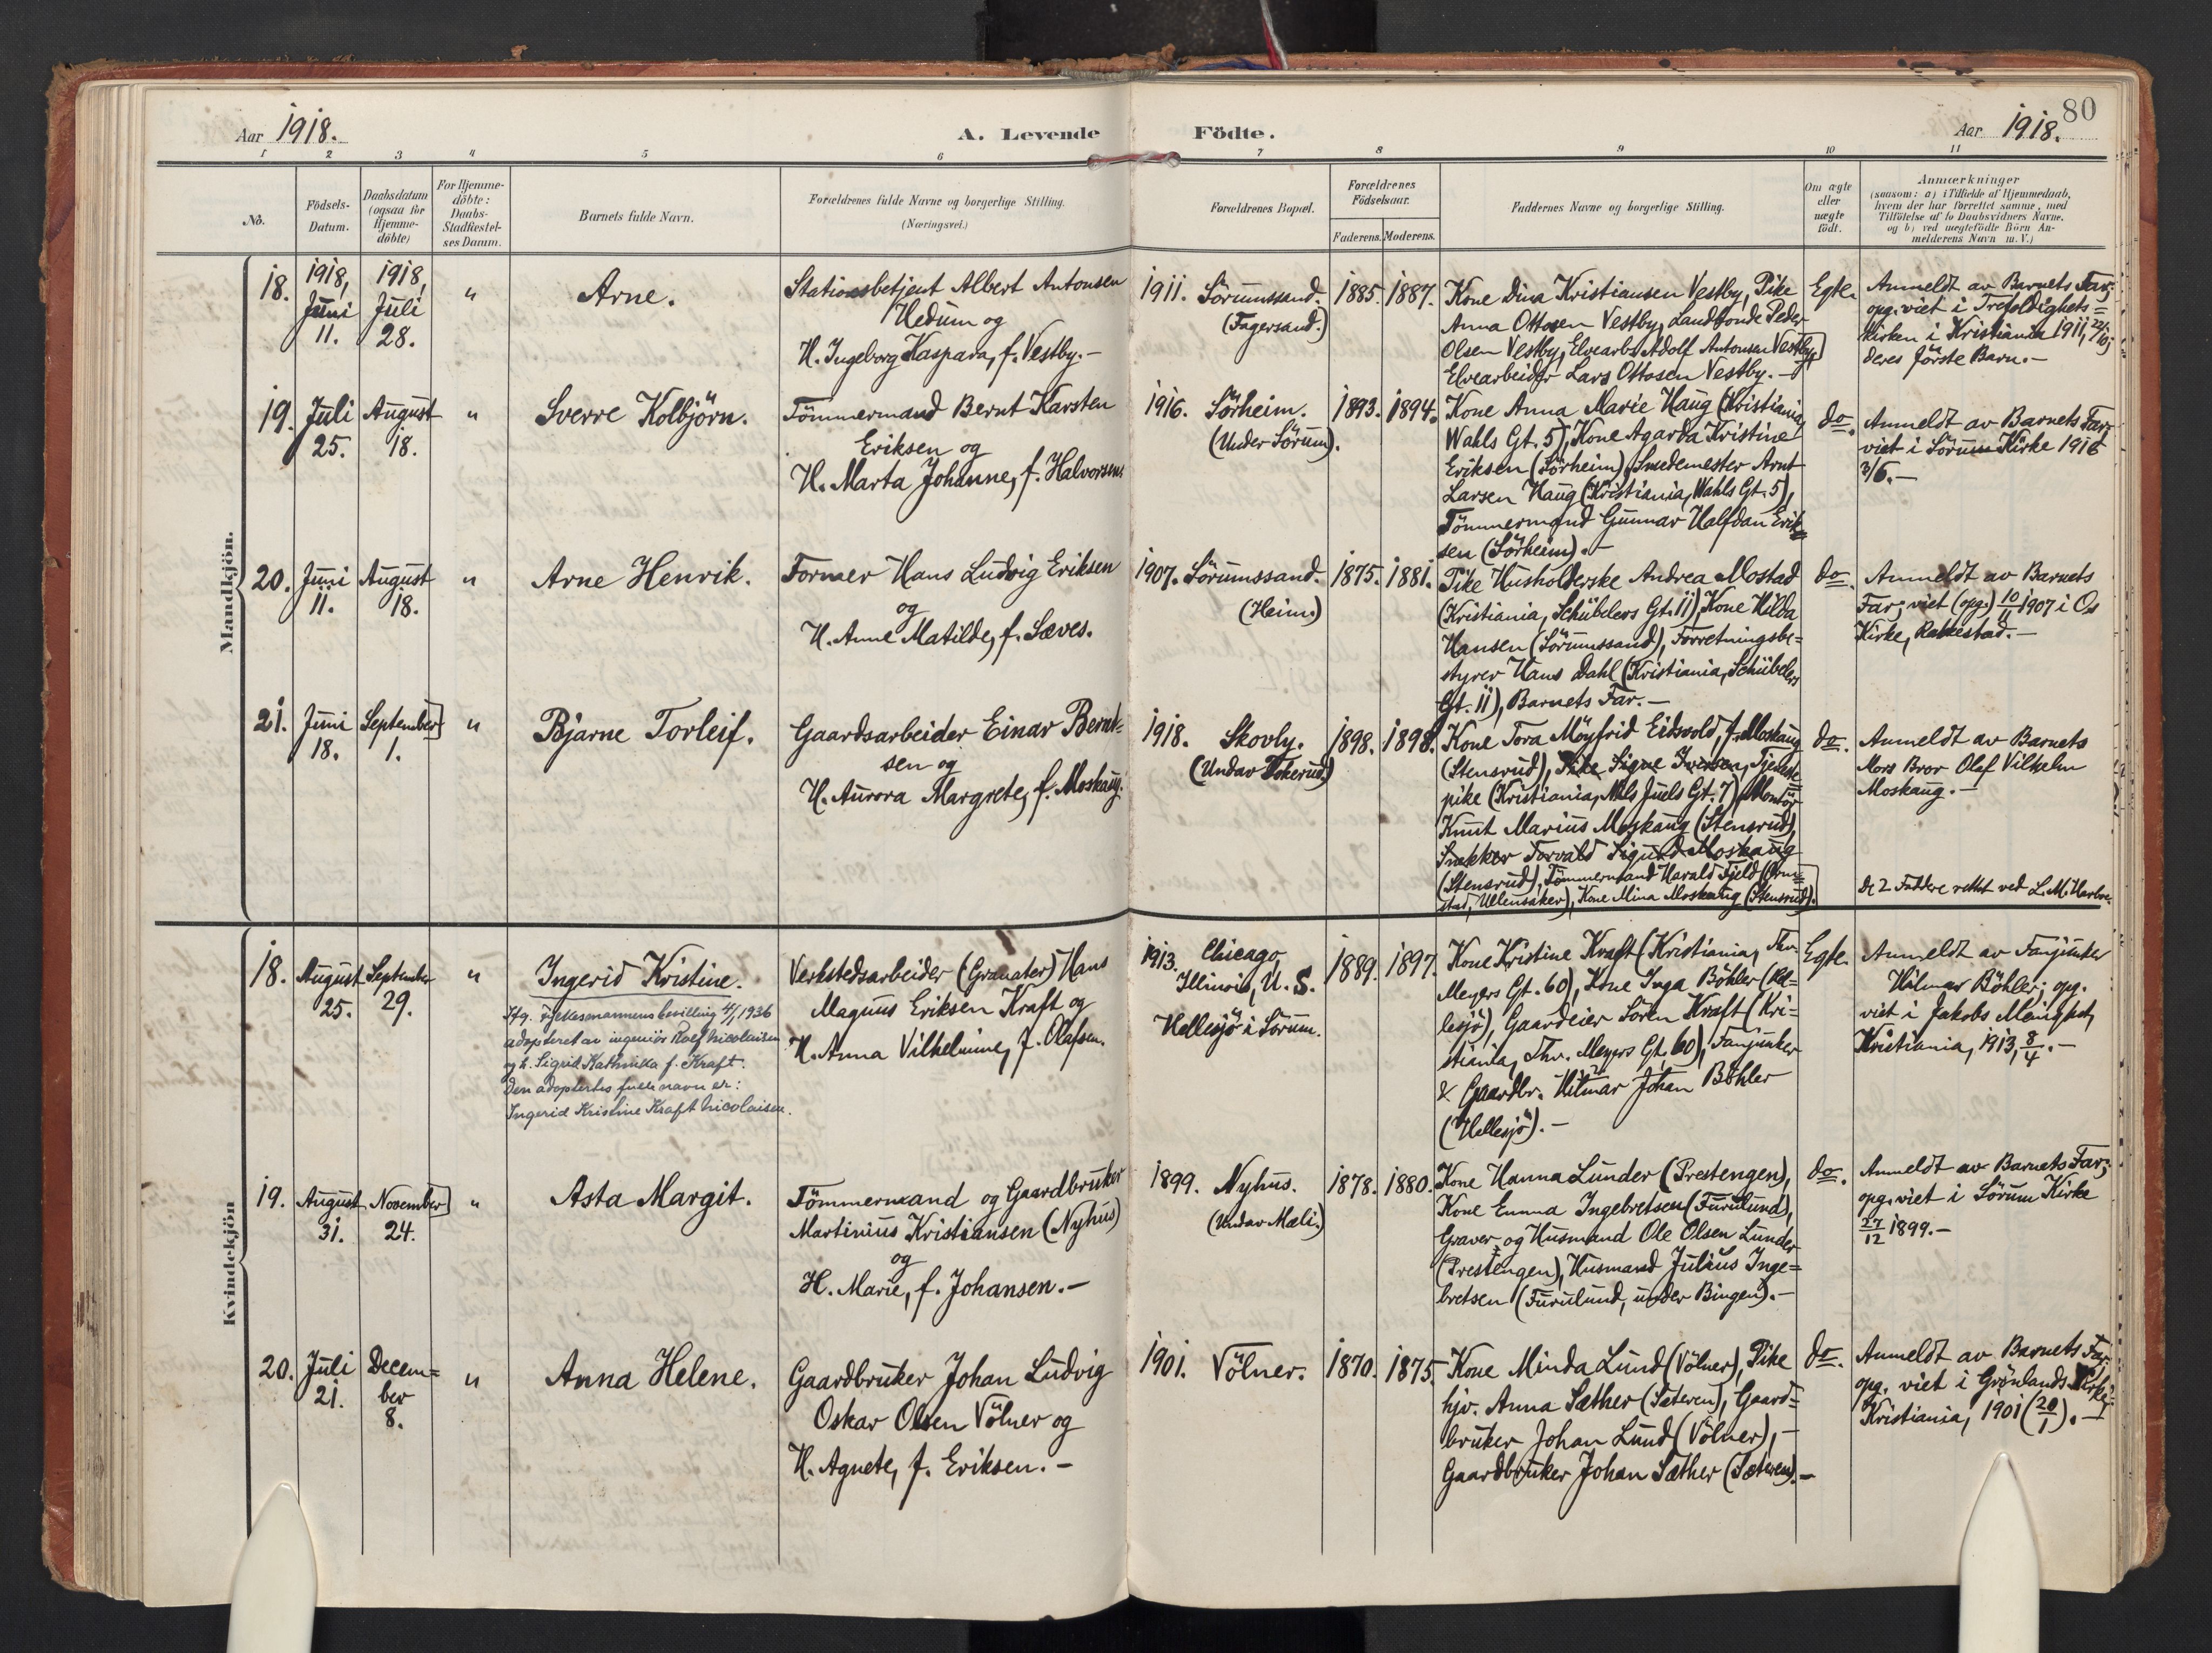 80
Aar 1918.
A. Levende Födte.
Aar 1918.
1 2 3 4 5 6 7 8 9 10 11
No.
Födsels-
Datum.
Daabsdatum
(ogsaa for
Hjemme-
döbte)
For Hjemme-
döbte:
Daabs-
Stadfæstel-
ses Datum.
Barnets fulde Navn.
Forældrenes fulde Navne og borgerlige Stilling.
(Næringsvei.)
Forældrenes Bopæl.
Forældrenes
Födselsaar.
Faderens. Moderens.
Faddernes Navne og borgerlige Stilling.
Om ægte
eller
uægte
födt.
Anmærkninger
(saasom: a) i Tilfælde af Hjemmedaab,
hvem der har forrettet samme, med
Tilföielse af to Daabsvidners Navne.
og b) ved uægtefödte Börn An-
melderens Navn m. V.)
Mandkjön.
18.
1918,
Juni
11.
1918,
Juli
28.
"
Arne.
Stationsbetjent Albert Antonsen
Hedum og
H. Ingeborg Kaspara, f. Vestby.-
1911. Sörumssand.
(Fagersand.)
1885. 1887.
Kone Dina Kristiansen Vestby, Pike
Anna Ottosen Vestby, Landbonde Peder
Olsen Vestby, Elvearb. Adolf Antonsen Vestby,
Elvearbeider Lars Ottosen Vestby.-
Egte.
Anmeldt av Barnets Far;
opg. viet i Trefoldigheds=
kirken i Kristiania 1911, 22/10;
deres förste Barn.-
19.
Juli
25.
August
18.
"
Sverre Kolbjörn.
Tömmermand Bernt Karsten
Eriksen og
H. Marta Johanne, f. Halvorsen.
1916. Sörheim.
(Under Sörum).
1893. 1894.
Kone Anna Marie Haug (Kristiania,
Wahls Gt. 5), Kone Agarda Kristine
Eriksen (Sörheim), Smedemester Arnt
Larsen Haug (Kristiania, Wahls Gt. 5),
Tömmermand Gunnar Halfdan Erik=
sen (Sörheim).-
do.
Anmeldt av Barnets Far;
viet i Sörum Kirke 1916
3/6.-
20.
Juni
11.
August
18.
"
Arne Henrik.
Former Hans Ludvig Eriksen
og
H. Anne Matilde, f. Sæves.
1907. Sörumssand.
(Heim.)
1875. 1881.
Pike Husholderske Andrea Mostad
(Kristiania, Schübelers Gt. 11), Kone Hilda
Hansen (Sörumssand), Forretningsbe=
styrer Hans Dahl (Kristiania, Schübelers
Gt. 11), Barnets Far.-
do.
Anmeldt av Barnets
Far; viet (opg.) 10/11 1907 i Os
Kirke, Rakkestad.-
21.
Juni
18.
September
1.
"
Bjarne Torleif.
Gaardsarbeider Einar Bernt=
sen og
H. Aurora Margrete, f. Moskaug.
1918. Skovly.
(Under Tokerud.)
1898. 1898.
Kone Tora Möyfrid Eidsvold, f. Moskaug
(Stensrud), Pike Signe Iversen, Tjeneste
pike (Kristiania, Nils Juels Gt. 7), Montör
Knut Marius Moskaug (Stensrud),
Snekker Torvald Sigurd Moskaug
(Stensrud), Tömmermand Harald Fjeld (Orm=
stad, Ullensaker), Kone Mina Moskaug (Stensrud).
do.
Anmeldt av Barnets
Mors Bror Olaf Vilhelm
Moskaug.-
de 2 Faddere rettet ved L. M.
Kvindekjön
18.
August
25.
September
29.
"
Ingerid Kristine.
Ifg. fylkesmannens bevilling 4/1 1936
adoptert av ingeniör Rolf Nicolaisen
og h. Sigrid Kathinka f. Kraft.
Den adoptertes fulle navn er:
Ingerid Kristine Kraft Nicolaisen.
Verkstedsarbeider (Granater) Hans
Magnus Eriksen Kraft og
H. Anna Vilhelmine, f. Olafsen.
1913. Chicago,
Illinois, U. S.
Hellesjö i Sörum.
1889. 1897.
Kone Kristine Kraft (Kristiania, Thv.
Meyers Gt. 60), Kone Inga Böhler (Hel=
lesjö), Gaardeier Sören Kraft (Kri=
stiania, Thv. Meyers Gt. 60), Fanjunker
& Gaardbr. Hilmar Johan Böhler
(Hellesjö).-
Egte.
Anmeldt av Fanjunker
Hilmar Böhler; opg.
viet i Jakobs Menighet,
Kristiania, 1913, 8/4.-
19.
August
31.
November
24.
"
Asta Margit.
Tömmermand og Gaardbruker
Martinius Kristiansen (Nyhus)
og
H. Marie, f. Johansen.-
1899. Nyhus.
(Under Mæli.)
1878. 1880.
Kone Hanna Lunder (Prestengen),
Kone Emma Ingebretsen (Furulund),
Graver og Husmand Ole Olsen Lunder
(Prestengen), Husmand Julius Inge=
bretsen (Furulund, under Bingen).-
do.
Anmeldt av Barnets Far;
opg. viet i Sörum Kirke
27/12 1899.-
20.
Juli
21.
Decem=
ber
8.
"
Anna Helene.
Gaardbruker Johan Ludvig
Oskar Olsen Völner og
H. Agnete, f. Eriksen.-
1901. Völner.
1870. 1875.
Kone Minda Lund (Völner), Pike
hjv. Anna Sæther (Sæteren), Gaard=
bruker Johan Lund (Völner),-
Gaardbruker Johan Sæther (Sæteren).-
do.
Anmeldt av Barnets Far;
opg. viet i Grönlands Kirke,
Kristiania, 1901 (20/1).-